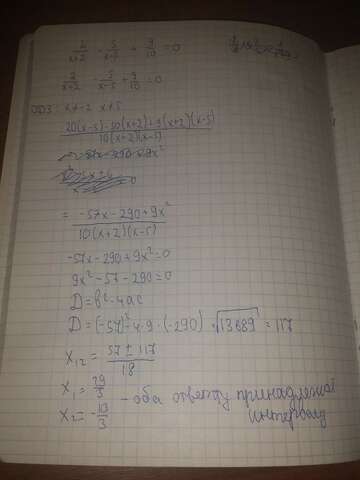 2/(x+2) - 5/(x-5) + 9/10 = 0
2/(x+2) - 5/(x-5) + 9/10 = 0
ОДЗ: x≠-2 x≠5
(20(x-5)-50(x+2)+9(x+2)(x-5))/(10(x+2)(x-5))
= (-57x-290+9x²)/(10(x+2)(x-5))
-57x-290+9x²=0
9x²-57-290=0
D=b²-4ac
D=(-57)²-4·9·(-290) √13689 = 117
x₁₂ = (57±117)/18
x₁ = 29/3
x₂ = -10/3
- оба ответа принадлежат
интервалу